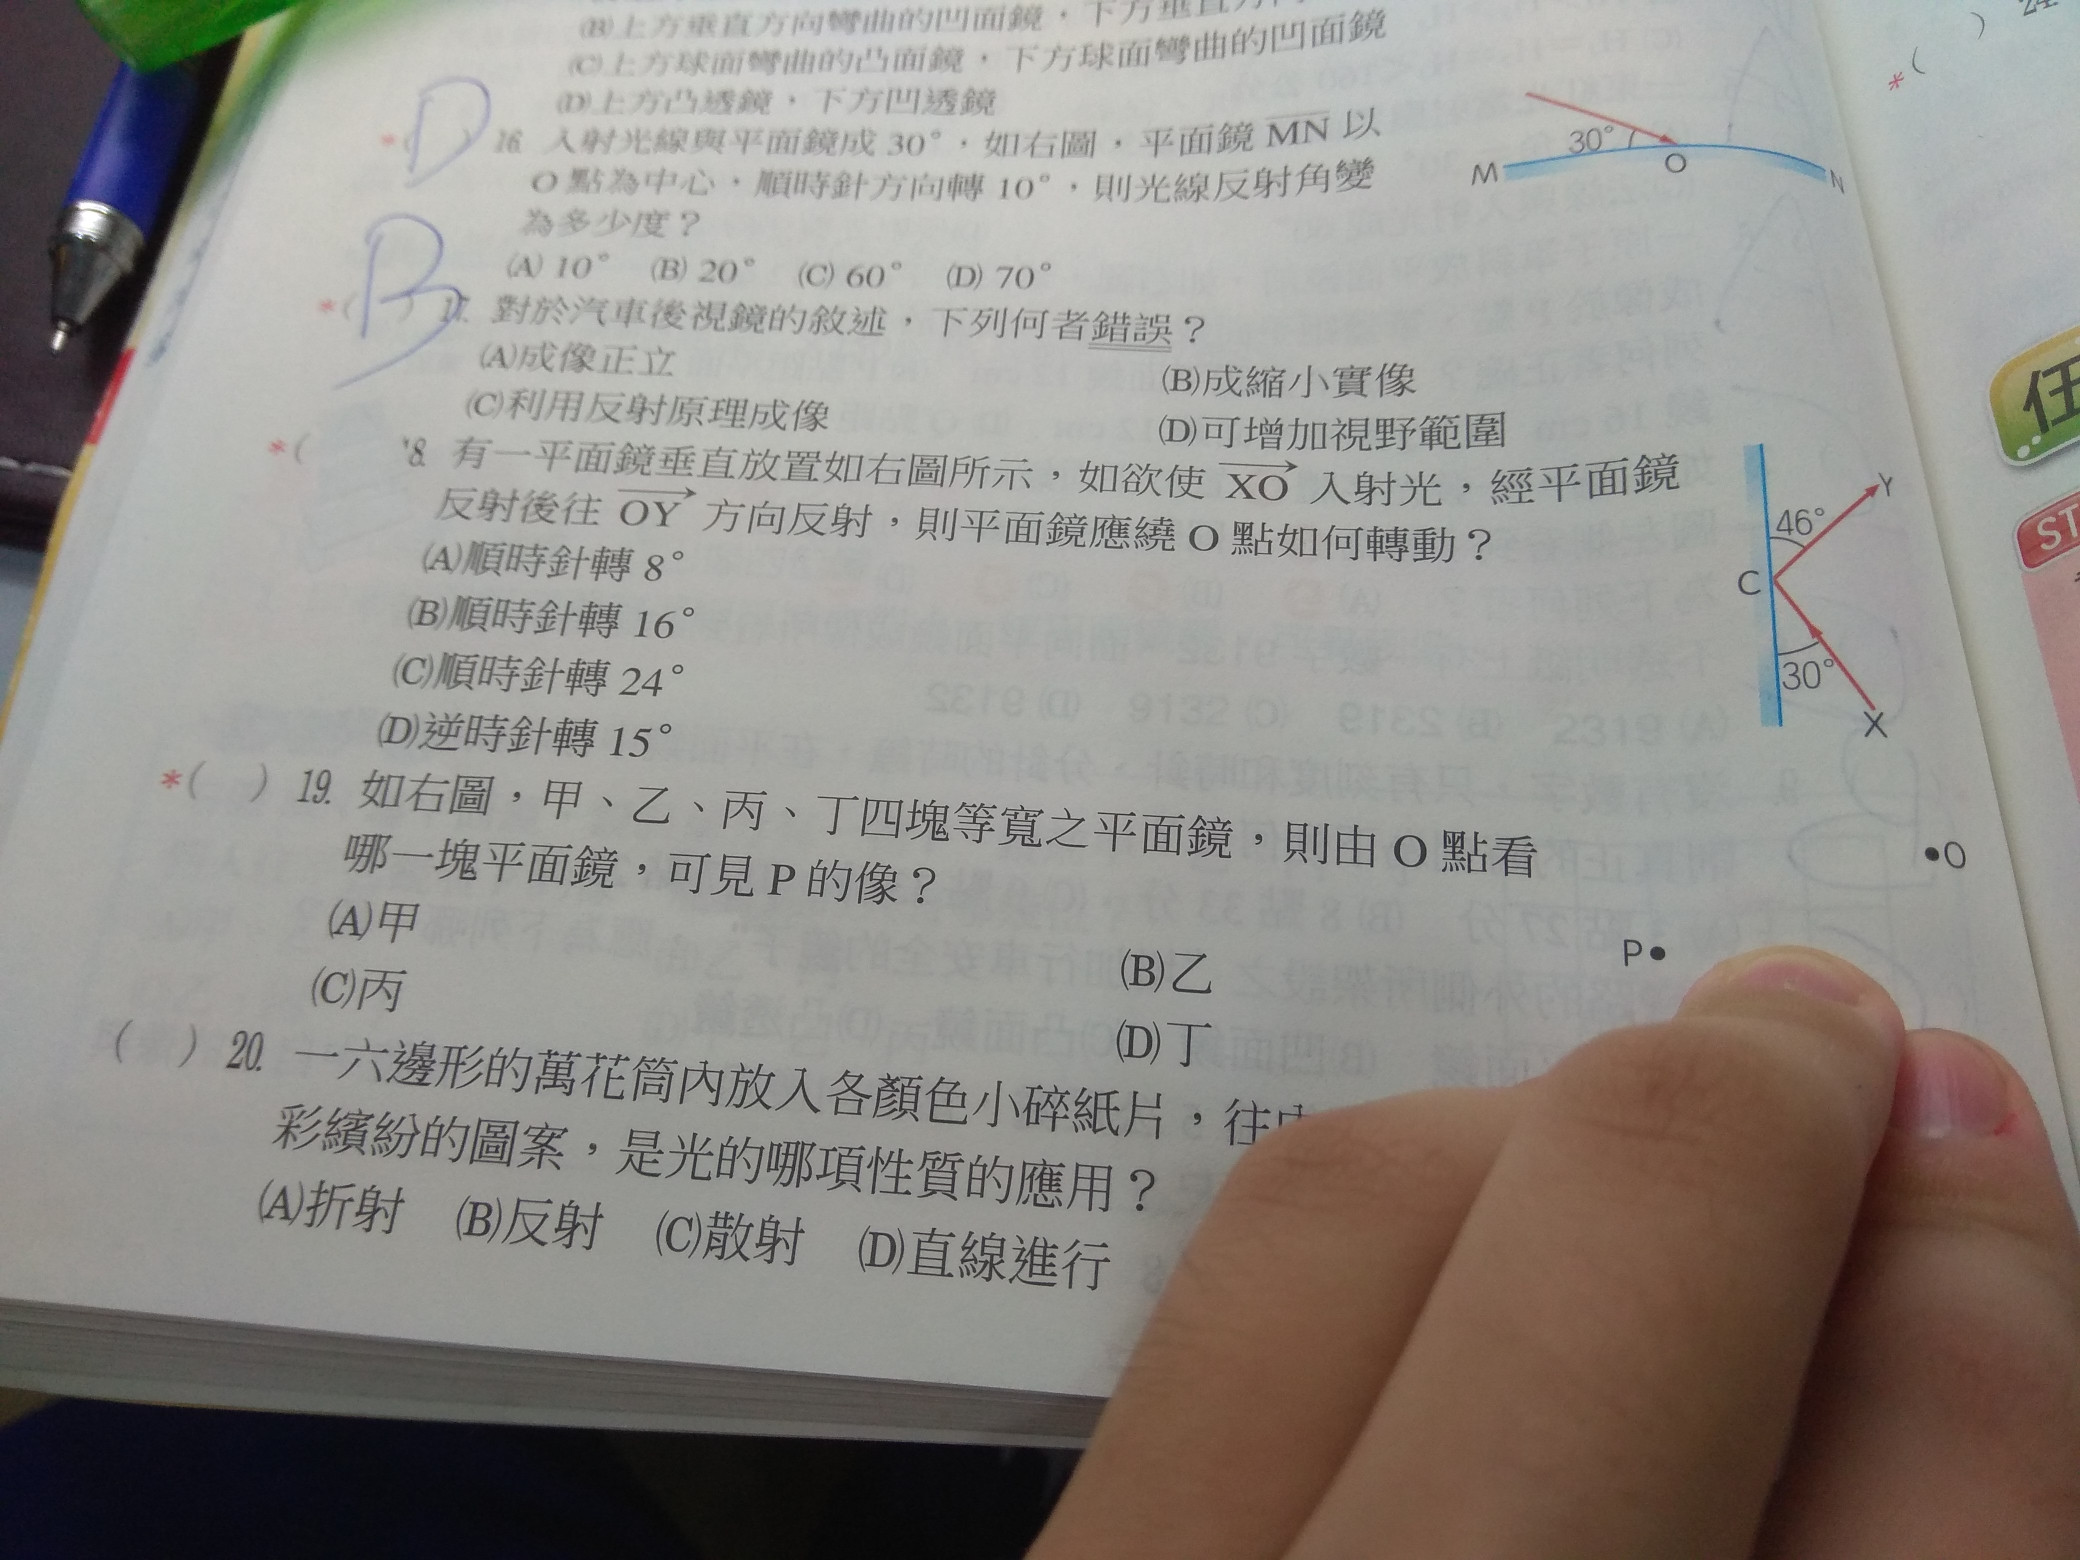 (B)上方垂直方向彎曲的凹面鏡，下方垂直方向
(C)上方球面彎曲的凸面鏡，下方球面彎曲的凹面鏡
(D)上方凸透鏡，下方凹透鏡
*( D ) 16. 入射光線與平面鏡成 30°，如右圖，平面鏡 MN 以
O 點為中心，順時針方向轉 10°，則光線反射角變
為多少度？
(A) 10° (B) 20° (C) 60° (D) 70°
30°
M
O
N
*( B ) 17. 對於汽車後視鏡的敘述，下列何者錯誤？
(A)成像正立 (B)成縮小實像
(C)利用反射原理成像 (D)可增加視野範圍
*( 18. 有一平面鏡垂直放置如右圖所示，如欲使 XO 入射光，經平面鏡
反射後往 OY 方向反射，則平面鏡應繞 O 點如何轉動？
(A)順時針轉 8°
(B)順時針轉 16°
(C)順時針轉 24°
(D)逆時針轉 15°
Y
46°
C
30°
X
*( ) 19. 如右圖，甲、乙、丙、丁四塊等寬之平面鏡，則由 O 點看
哪一塊平面鏡，可見 P 的像？
(A)甲 (B)乙
(C)丙 (D)丁
•O
P•
( ) 20. 一六邊形的萬花筒內放入各顏色小碎紙片，往
彩繽紛的圖案，是光的哪項性質的應用？
(A)折射 (B)反射 (C)散射 (D)直線進行
) 24.
*(
任
ST